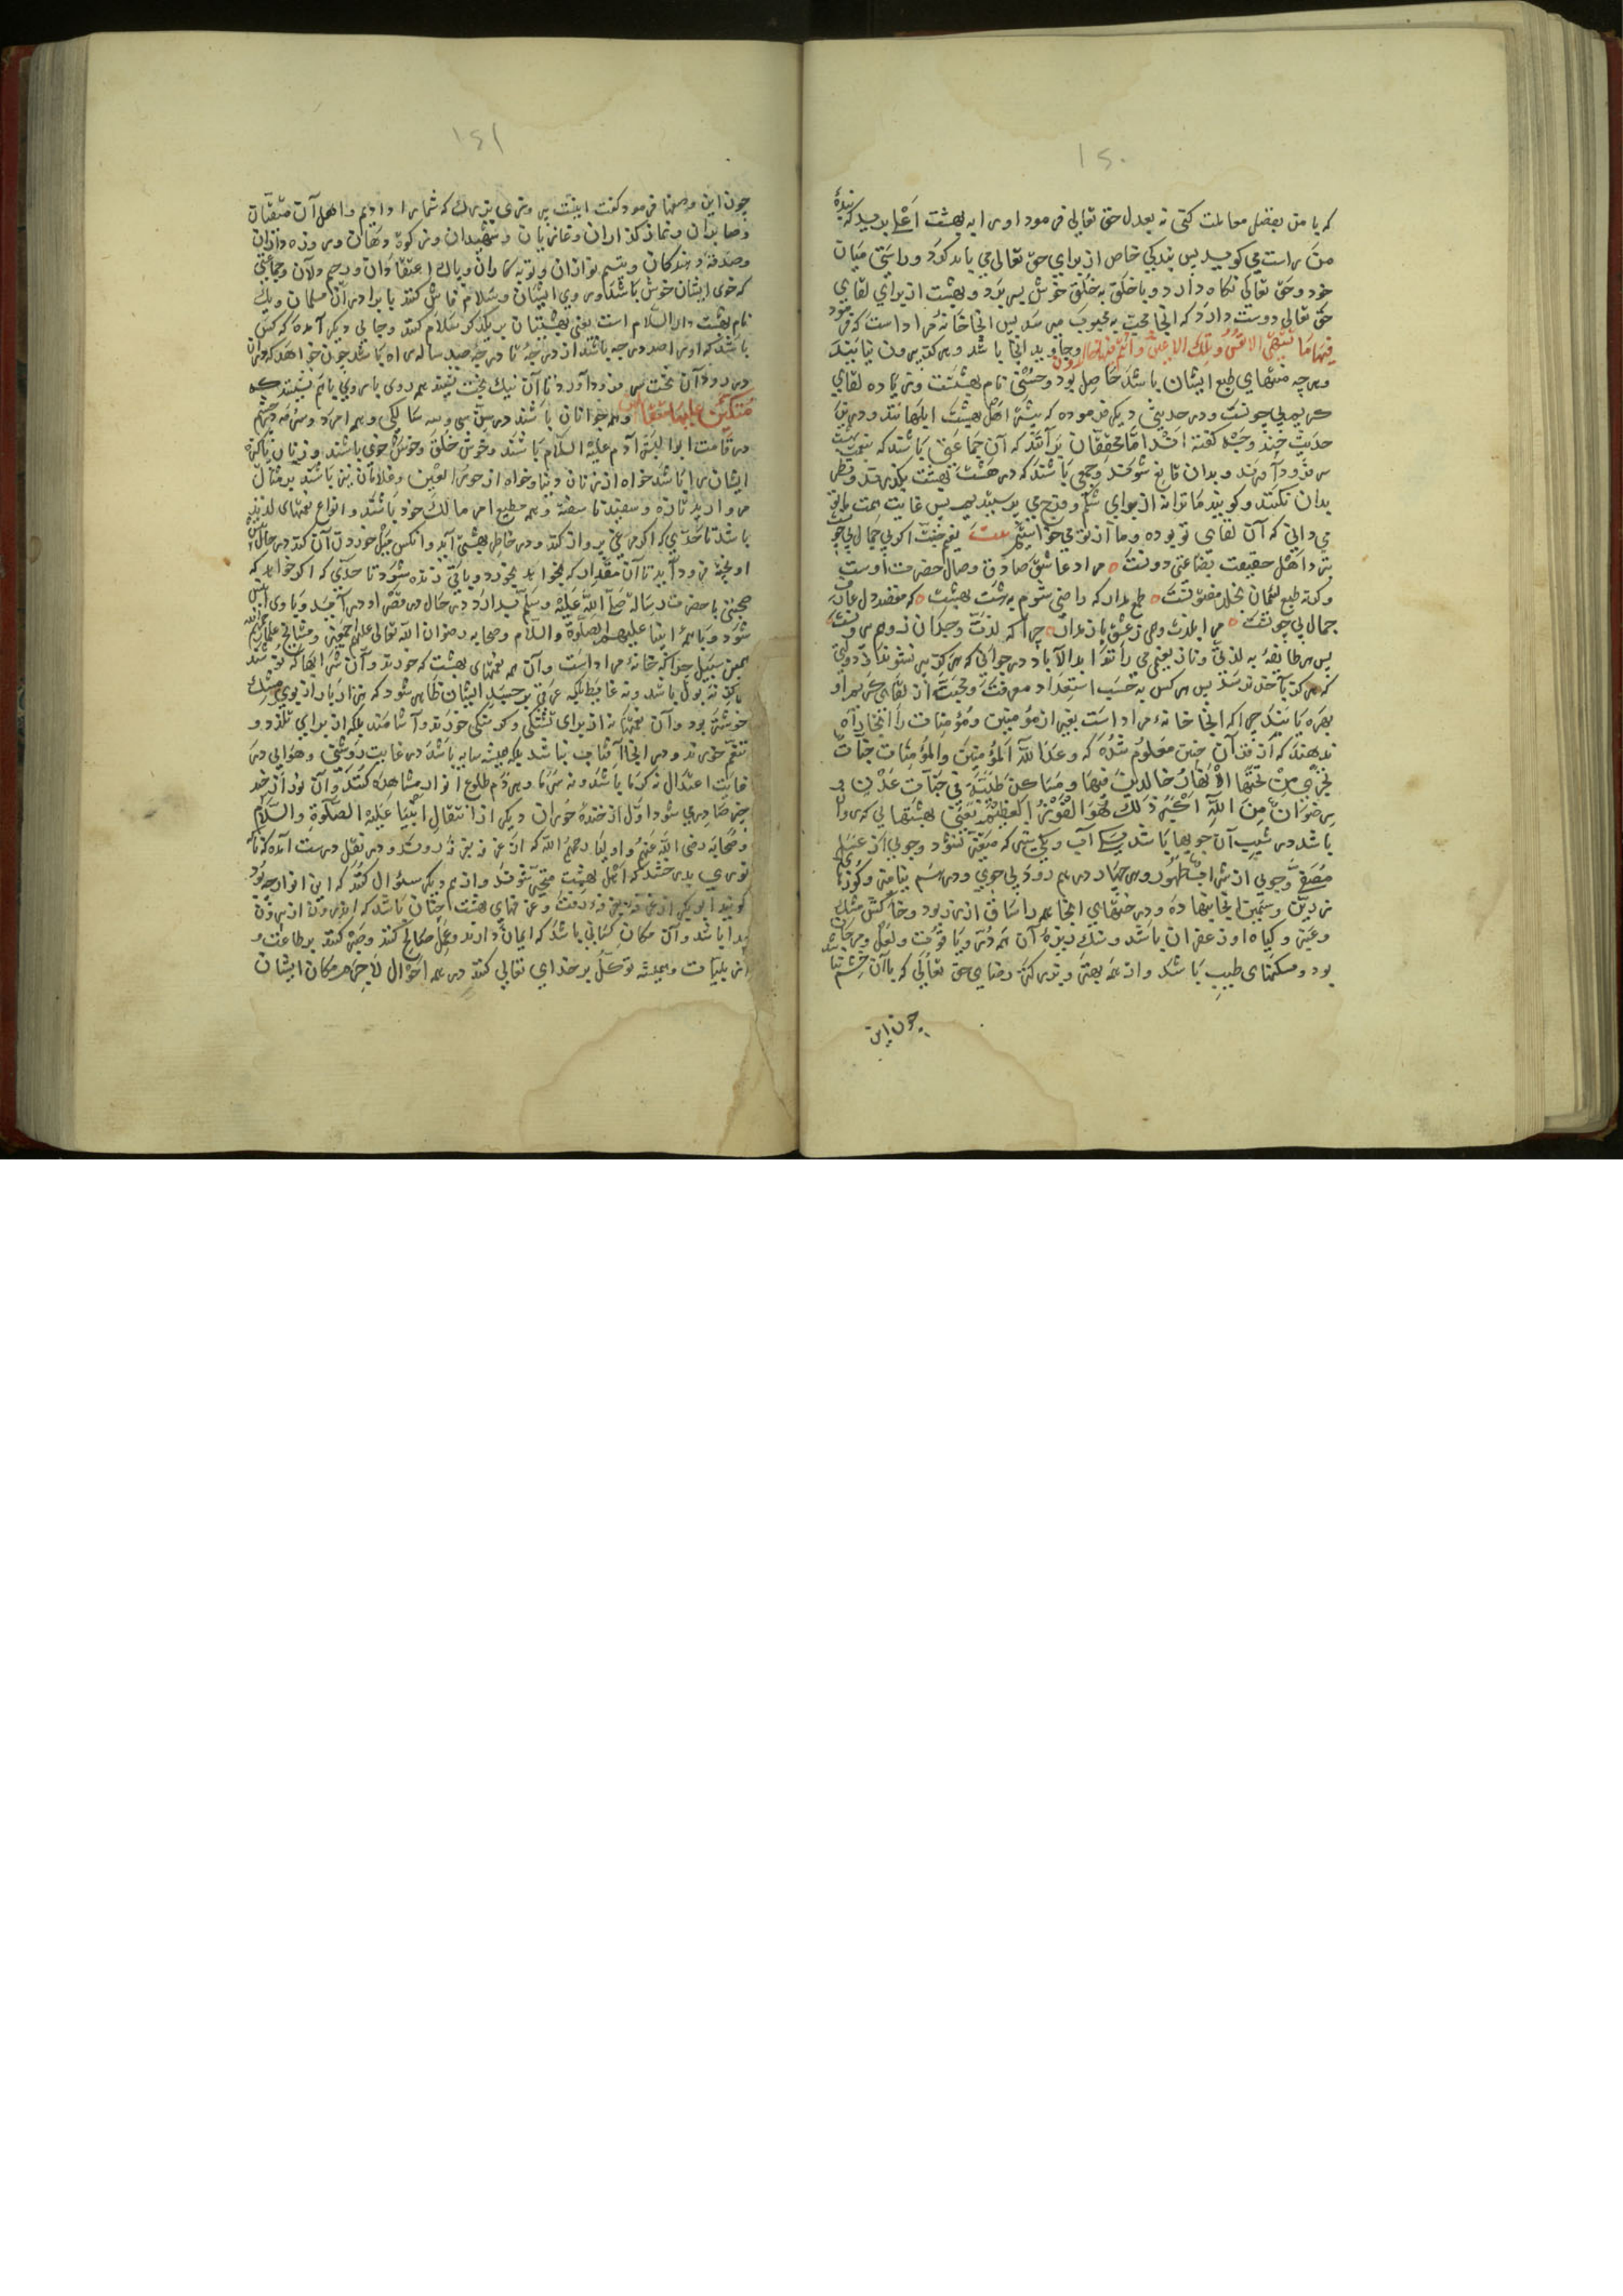 ۱۵۰
که با من بفضل معاملت کنی نه بعدل حق تعالی فرمود او را به بهشت اعلی برید که بندهٔ
من راست می کوید پس بندکی خاص از برای حق تعالی می باید کرد و راستی میان
خود و حق تعالی نکاه دارد و با خلق به خلق خوش بسر برد و بهشت از برای لقای
حق تعالی دوست دارد که آنجا محب به محبوب می رسد پس آنجا خانهٔ مراد است که فرمود
فیها ما تشتهی الانفس وتلذ الاعین وانتم فیها خالدون وجاوید آنجا باشد و هرکز بیرون نیایند
و هر چه منتهای طبع ایشان باشد حاصل بود و حسنی نام بهشتست و زیاده لقای
کریم بی چونست و در حدیثی دیکر فرموده که بیشتر اهل بهشت ابلهانند و درین
حدیث چند وجه کفته اند اما محققان برآنند که آن جماعتی باشند که بنعمت بهشت
سر فرود آورند و بدان قانع شوند و جمعی باشند که در هشت بهشت بکذرند و نظر
بدان نکنند و کویند ما ترا نه از برای شکم و فرج می پرستیدیم پس غایت همت ما تو
می دانی که آن لقای تو بوده و ما از تو می خواستیم بیت نعیم جنت اکر بی جمال بی چونست
بنزد اهل حقیقت بضاعتی دونست مراد عاشق صادق وصال حضرت اوست
و کرنه طبع لئیمان بخلد مفتونست طمع مدار که راضی شوم به هشت بهشت که مقصد دل عارف
جمال بی چونست مرا بلذت وصل ز عشق باز مدان چرا که لذت وجدان ز وصل بیرونست
پس هر طائفه به لذتی و نازنعیمی می رانند ابد الآباد در جوانی که هرکز پیر نشوند از دولتی
که هرکز بآخر نرسد پس هر کس به حسب استعداد معرفت و محبت از لقای کریم او
بهره یابند چرا که آنجا خانهٔ مراد است بغیر از مؤمنین و مؤمنات را آنجا راه
ندهند که از قرآن چنین معلوم شده که وعد الله المؤمنین والمؤمنات جنات
تجری من تحتها الانهار خالدین فیها ومساکن طیبة فی جنات عدن و
رضوان من الله اکبر ذلک هو الفوز العظیم یعنی بهشتهایی که روان
باشد در شیب آن جویها باشد آب و یکی شیر که متغیر نشود و جویی از عسل
مصفی و جویی از شراب طهور
و عنبر و کیاه او زعفران باشد و سنک ریزهٔ آن همه در و یاقوت و لعل و مرجان
بود و مسکنهای طیب باشد و از همه بهتر و بزرکتر رضای حق تعالی که با آن خشم نباشد
چون این
۱۵۱
چون این وصفها فرمود کفت اینست پیروزی بزرک که شما را دادیم و اهل آن متقیان
و صابران و نماز کذاران و غازیان و شهیدان و زکوة دهان و روزه داران
و صدقه دهندکان و یتیم نوازان و توبه کاران و پاک اعتقادان و رحیم دلان و جماعتی
که خوی ایشان خوش باشد و روی ایشان و سلام فاش کنند با برادران مسلمان و یک
نام بهشت دار السلام است یعنی بهشتیان بر یکدیکر سلام کنند و جایی دیکر آمده که کس
باشد که او را صد درجه باشد از درجهٔ تا درجه صد ساله راه باشد چون خواهد که بران
در رود آن تخت سر فرود آورد تا آن نیک بخت نشیند همه روی با روی باهم نشینند که
متکئین علیها متقابلین و همه جوانان باشند در سن سی و سه سالکی و همه امرد و سرمه چشم
در قامت ابو البشر آدم علیه السلام باشند و خوش خلق و خوش خوی باشند و زنان پاکیزه
ایشان را باشد خواه از زنان دنیا و خواه از حور العین و غلامان نیز باشند بر مثال
مروارید تازه و سفید نا سفته و همه مطیع امر مالک خود باشند و انواع نعمتهای لذیذ
باشد تا حدی که اکر مرغی پرواز کند و در خاطر بهشتی آید و آنکس میل خوردن آن کند در حال
او پخته فرود آید تا آن مقدار که بخواهد بخورد و باقی زنده شود تا حدی که اکر خواهد که
صحبتی با حضرت رسالت صلی الله علیه وسلم بدارد در حال در قصر او در آید و با وی انیس
شود و با همهٔ انبیا علیهم الصلوة والسلام و صحابه رضوان الله تعالی علیهم اجمعین و مشایخ علما رحمهم الله
بهمین سبیل چرا که خانهٔ مراد است و آن همه نعمتهای بهشت که خورند و آن شرابها که نوشند
هرکز نه بول باشد و نه غایط بلکه عرقی بر جسد ایشان ظاهر شود که هزار بار از بوی مشک
خوشتر بود و آن نعمتها نه از برای تشنکی و کرسنکی خورند و آشامند بلکه از برای تلذذ و
تنعم خورند و در آنجا آفتاب نباشد بلکه همیشه سایه باشد در غایت روشنی و هوایی در
غایت اعتدال نه کرما باشد و نه سرما و هر دم طلوع انوار مشاهده کنند و آن نور از چند
چیز صادر می شود اول از خندهٔ حوران دیکر از انتقال انبیا علیه الصلوة والسلام
و صحابه رضی الله عنهم و اولیا رحمهم الله که از غرفه بغرفه روند و در نقل درست آمده که ناکاه
نوری بدرخشد که اهل بهشت متحیر شوند و از هم دیکر سؤال کنند که این انوار چه بود
کویند ابو بکر از غرفه بغرفه رفت و غرفهای بهشت چنان باشد که اندرون از بیرون
پیدا باشد و آن مکان کسانی باشد که ایمان دارند و عمل صالح کنند و صبر کنند بر طاعت و
از بلیات و همیشه توکل بر خدای تعالی کنند در همه احوال لاجرم مکان ایشان